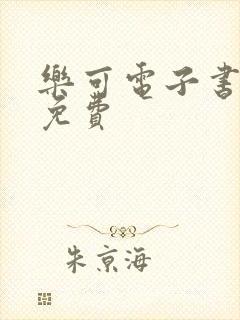 樂可電子書
免費
朱京海